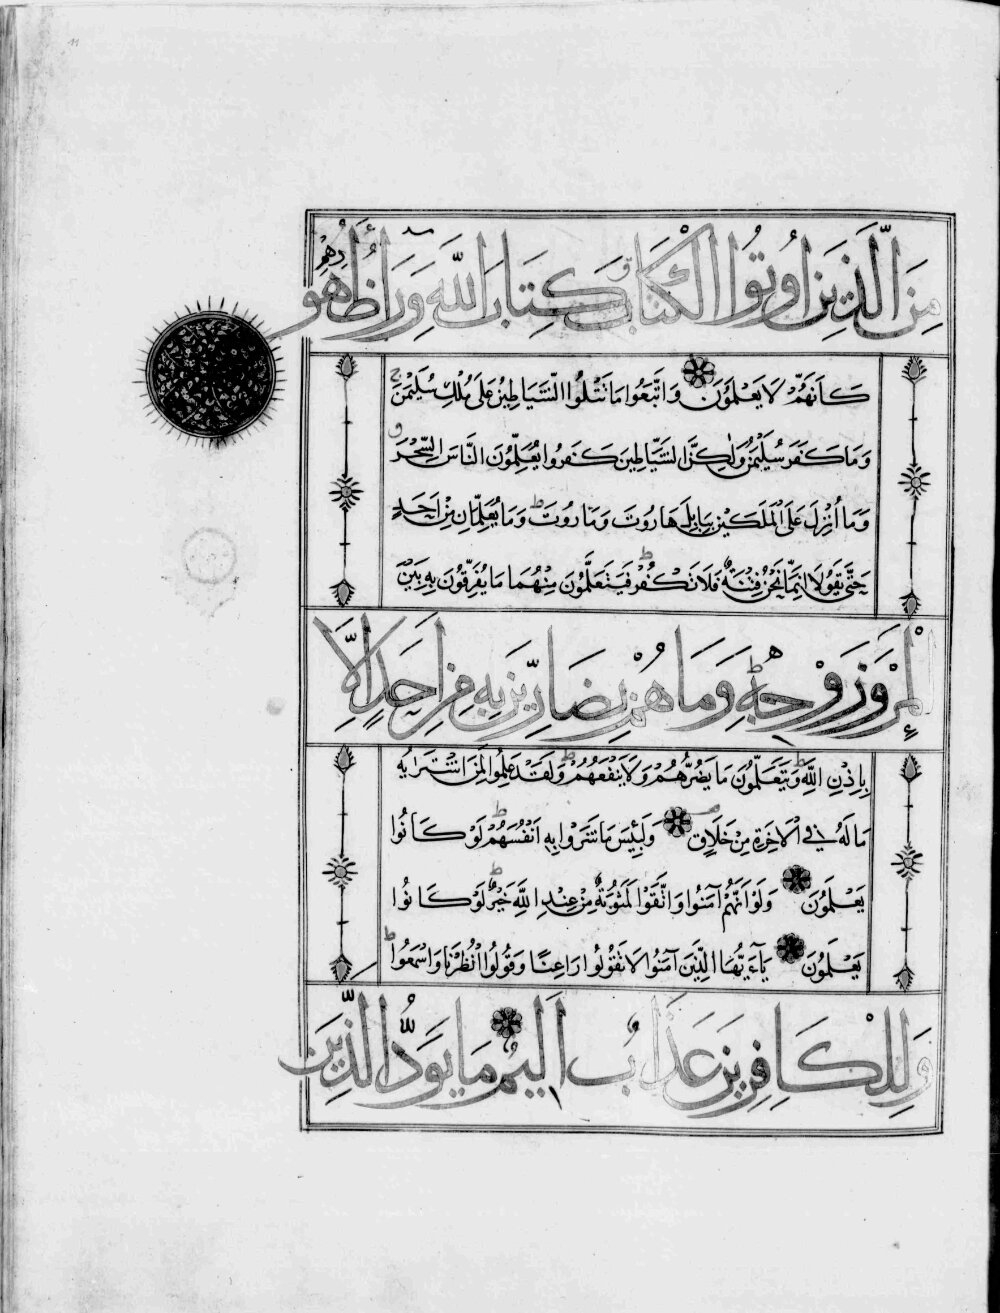 مِنَ الَّذِينَ اُوتُوا الْكِتَابَ كِتَابَ اللَّهِ وَرَاءَ ظُهُورِهِمْ
كَاَنَّهُمْ لَا يَعْلَمُونَ وَاتَّبَعُوا مَا تَتْلُوا الشَّيَاطِينُ عَلَى مُلْكِ سُلَيْمٰنَ
وَمَا كَفَرَ سُلَيْمٰنُ وَلٰكِنَّ الشَّيَاطِينَ كَفَرُوا يُعَلِّمُونَ النَّاسَ السِّحْرَ
وَمَا اُنْزِلَ عَلَى الْمَلَكَيْنِ بِبَابِلَ هَارُوتَ وَمَارُوتَ وَمَا يُعَلِّمَانِ مِنْ اَحَدٍ
حَتَّى يَقُولَا اِنَّمَا نَحْنُ فِتْنَةٌ فَلَا تَكْفُرْ فَيَتَعَلَّمُونَ مِنْهُمَا مَا يُفَرِّقُونَ بِهِ بَيْنَ
الْمَرْءِ وَزَوْجِهِ وَمَا هُمْ بِضَارِّينَ بِهِ مِنْ اَحَدٍ اِلَّا
بِاِذْنِ اللَّهِ وَيَتَعَلَّمُونَ مَا يَضُرُّهُمْ وَلَا يَنْفَعُهُمْ وَلَقَدْ عَلِمُوا لَمَنِ اشْتَرَاهُ
مَا لَهُ فِي الْاٰخِرَةِ مِنْ خَلَاقٍ وَلَبِئْسَ مَا شَرَوْا بِهِ اَنْفُسَهُمْ لَوْ كَانُوا
يَعْلَمُونَ وَلَوْ اَنَّهُمْ آمَنُوا وَاتَّقَوْا لَمَثُوبَةٌ مِنْ عِنْدِ اللَّهِ خَيْرٌ لَوْ كَانُوا
يَعْلَمُونَ يَا اَيُّهَا الَّذِينَ آمَنُوا لَا تَقُولُوا رَاعِنَا وَقُولُوا انْظُرْنَا وَاسْمَعُوا
وَلِلْكَافِرِينَ عَذَابٌ اَلِيمٌ مَا يَوَدُّ الَّذِينَ